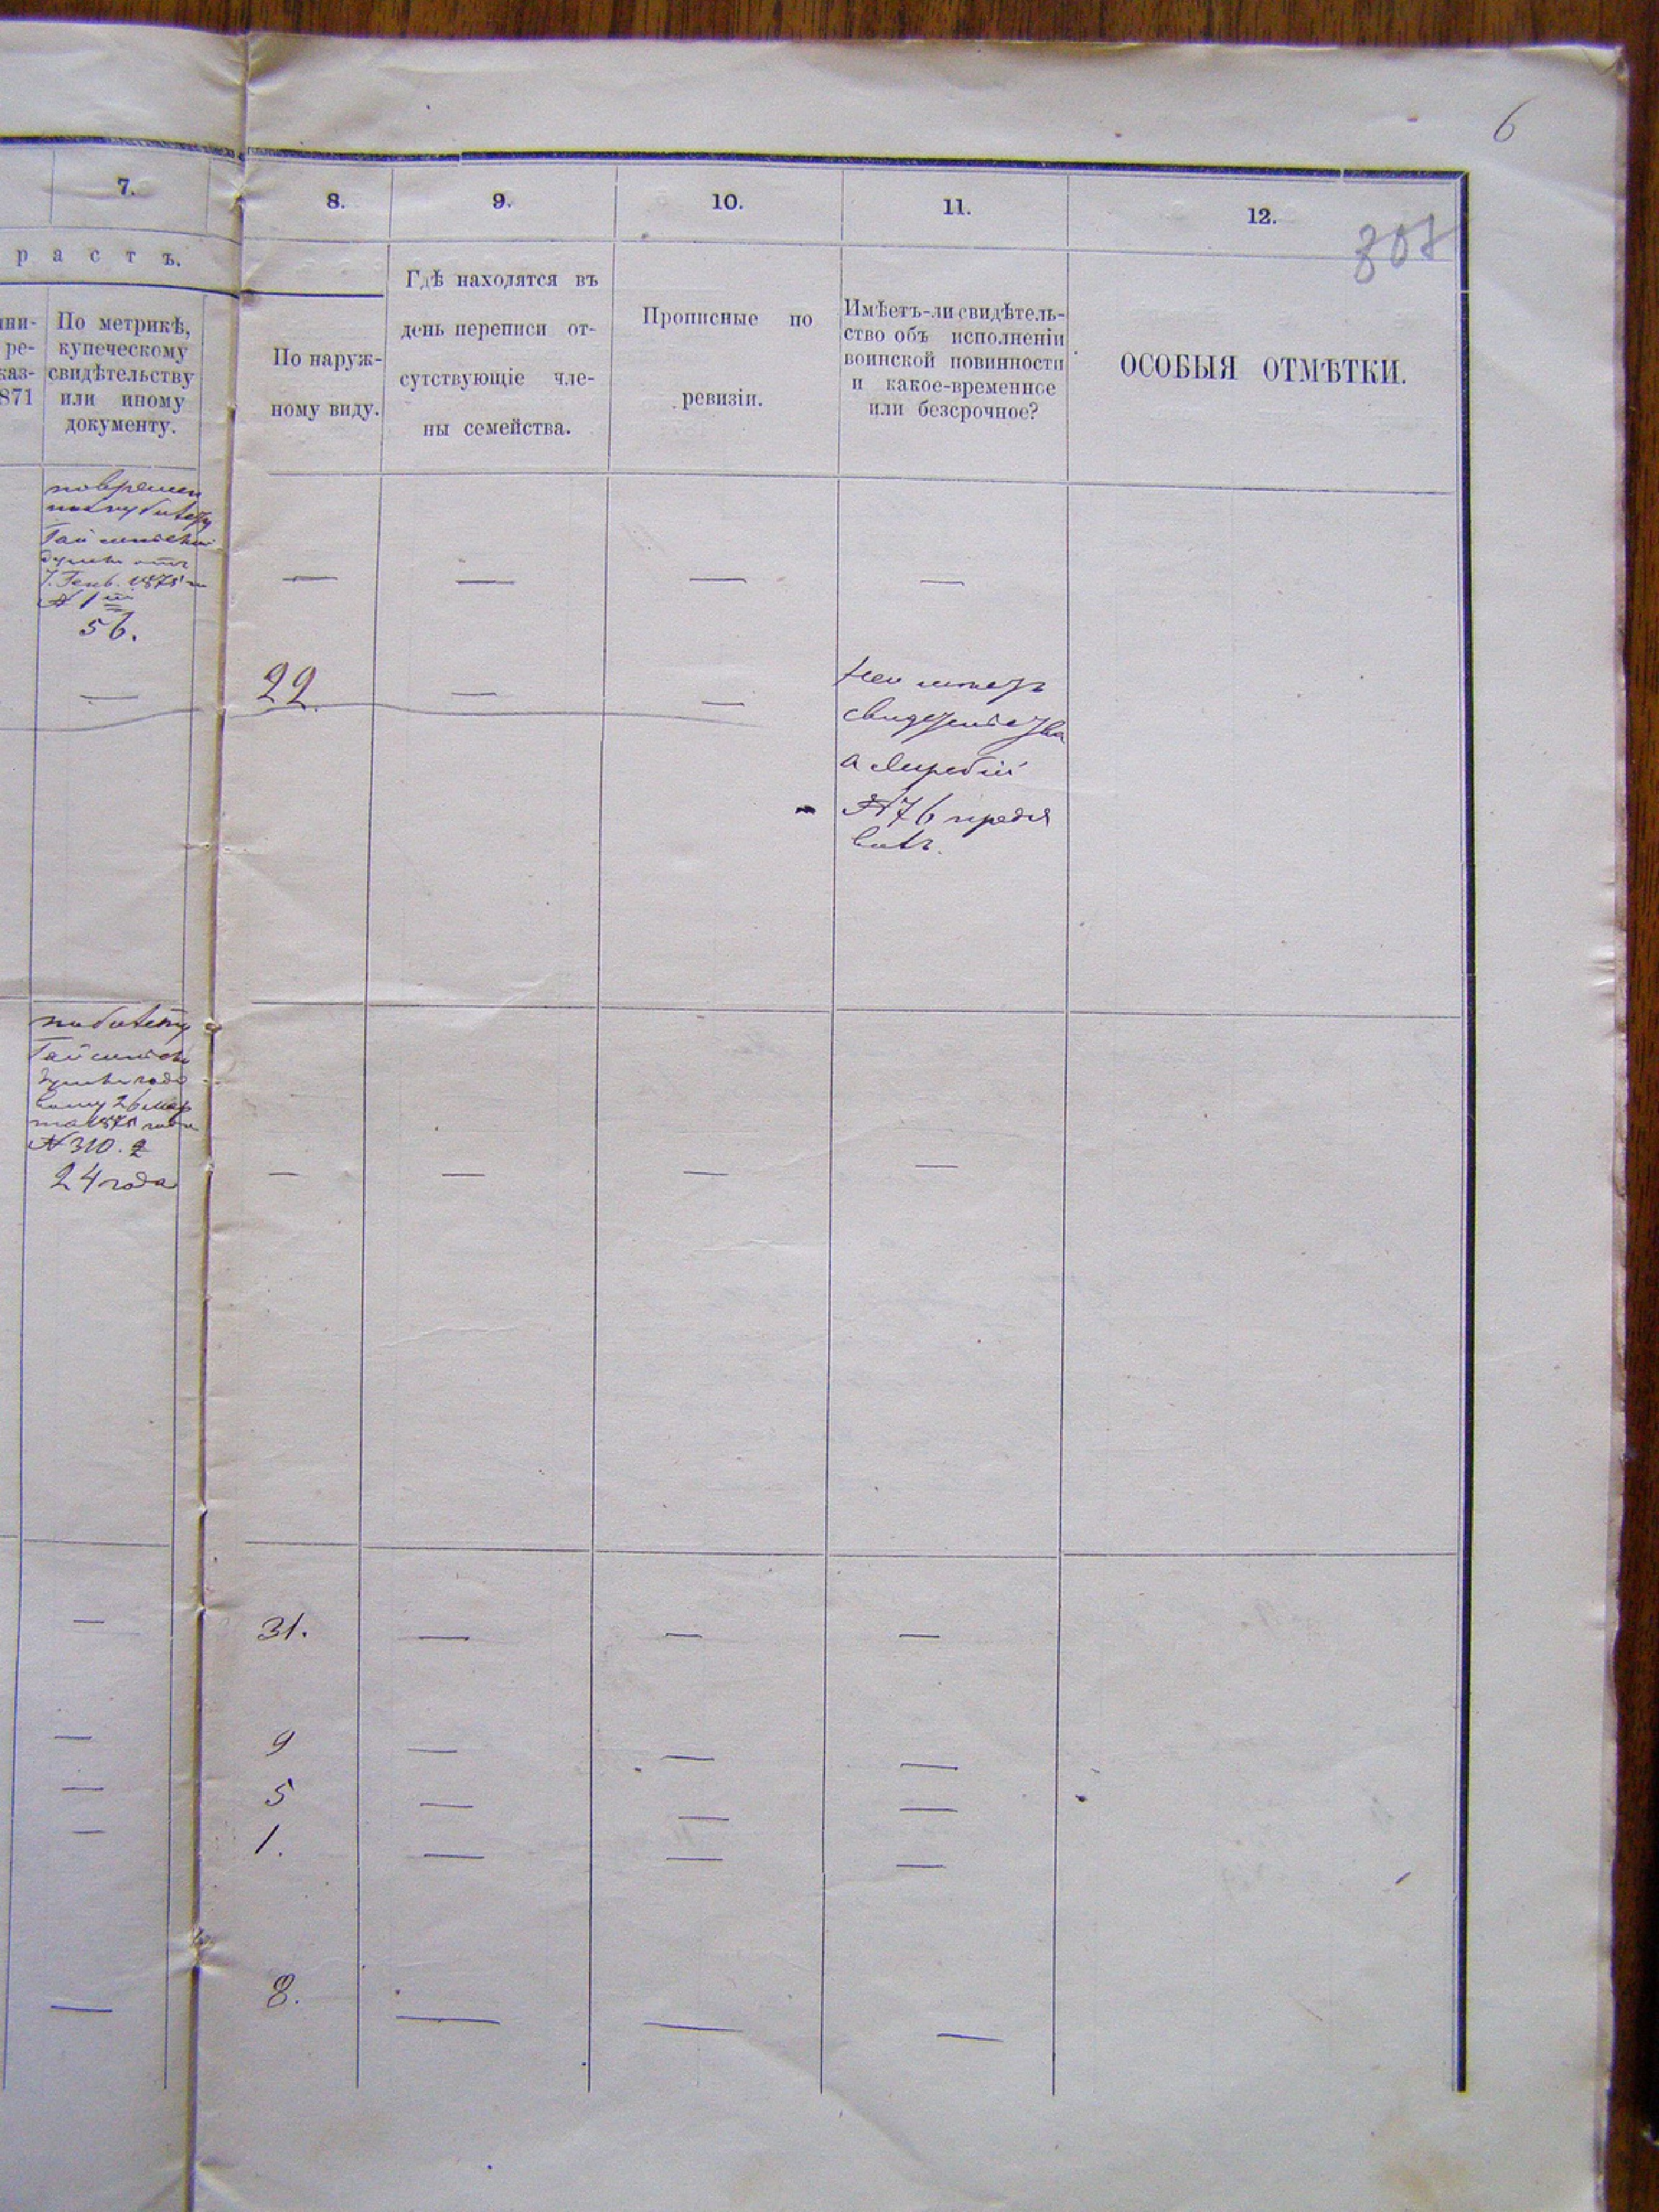 6
7.
8.
9.
10.
11.
12.
808
р а с т ъ.
ни-
ре-
каз-
871
По метрикѣ,
купеческому
свидѣтельству
или иному
документу.
По наруж-
ному виду.
Гдѣ находятся въ
день переписи от-
сутствующіе чле-
ны семейства.
Прописные по
ревизіи.
Имѣетъ-ли свидѣтель-
ство объ исполненіи
воинской повинности
и какое-временное
или безсрочное?
ОСОБЫЯ ОТМѢТКИ.
1875
№ 1
56.
—
—
—
—
—
22.
—
—
свидетельства
а жеребій
№ 76 предъя
вилъ.
по билету
26 мар
та 1875 года
№ 310.
24 года
—
—
—
—
—
31.
—
—
—
—
9
—
—
—
—
5
—
—
—
—
1.
—
—
—
—
8.
—
—
—